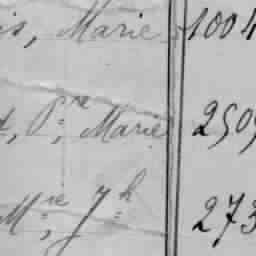 is, Marie 1004
t, Pre, Marie 2509
Mie, Jh 273